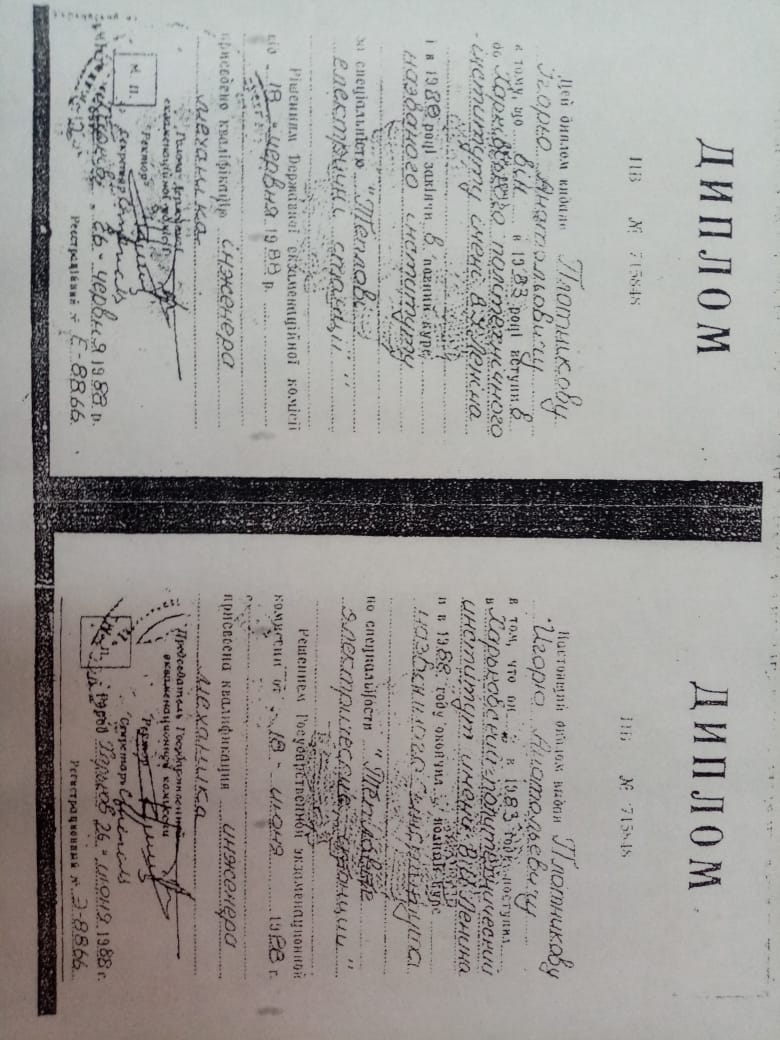 ДИПЛОМ
ПВ № 715848
Цей диплом видано Плотнікову
Ігорю Анатольовичу
в тому, що він в 1983 році вступив
до Харківського політехнічного
інституту імені В.І.Леніна
і в 1988 році закінчив повний курс
названого інституту
за спеціальністю "Теплові
електричні станції"
Рішенням Державної екзаменаційної комісії
від 18 червня 1988 р.
присвоєно кваліфікацію інженера
механіка
Голова Державної
екзаменаційної комісії
Ректор
Секретар
М. П.
26 червня 1988 р.
Реєстраційний № Е-8866
ДИПЛОМ
ПВ № 715848
Настоящий диплом выдан Плотникову
Игорю Анатольевичу
в том, что он в 1983 году поступил
в Харьковский политехнический
институт имени В.И.Ленина
и в 1988 году окончил полный курс
названного института
по специальности "Тепловые
электрические станции"
Решением Государственной экзаменационной
комиссии от 18 июня 1988 г.
присвоена квалификация инженера
механика
Председатель Государственной
экзаменационной комиссии
Ректор
Секретарь
М. П.
Город Харьков 26 июня 1988 г.
Регистрационный № Э-8866